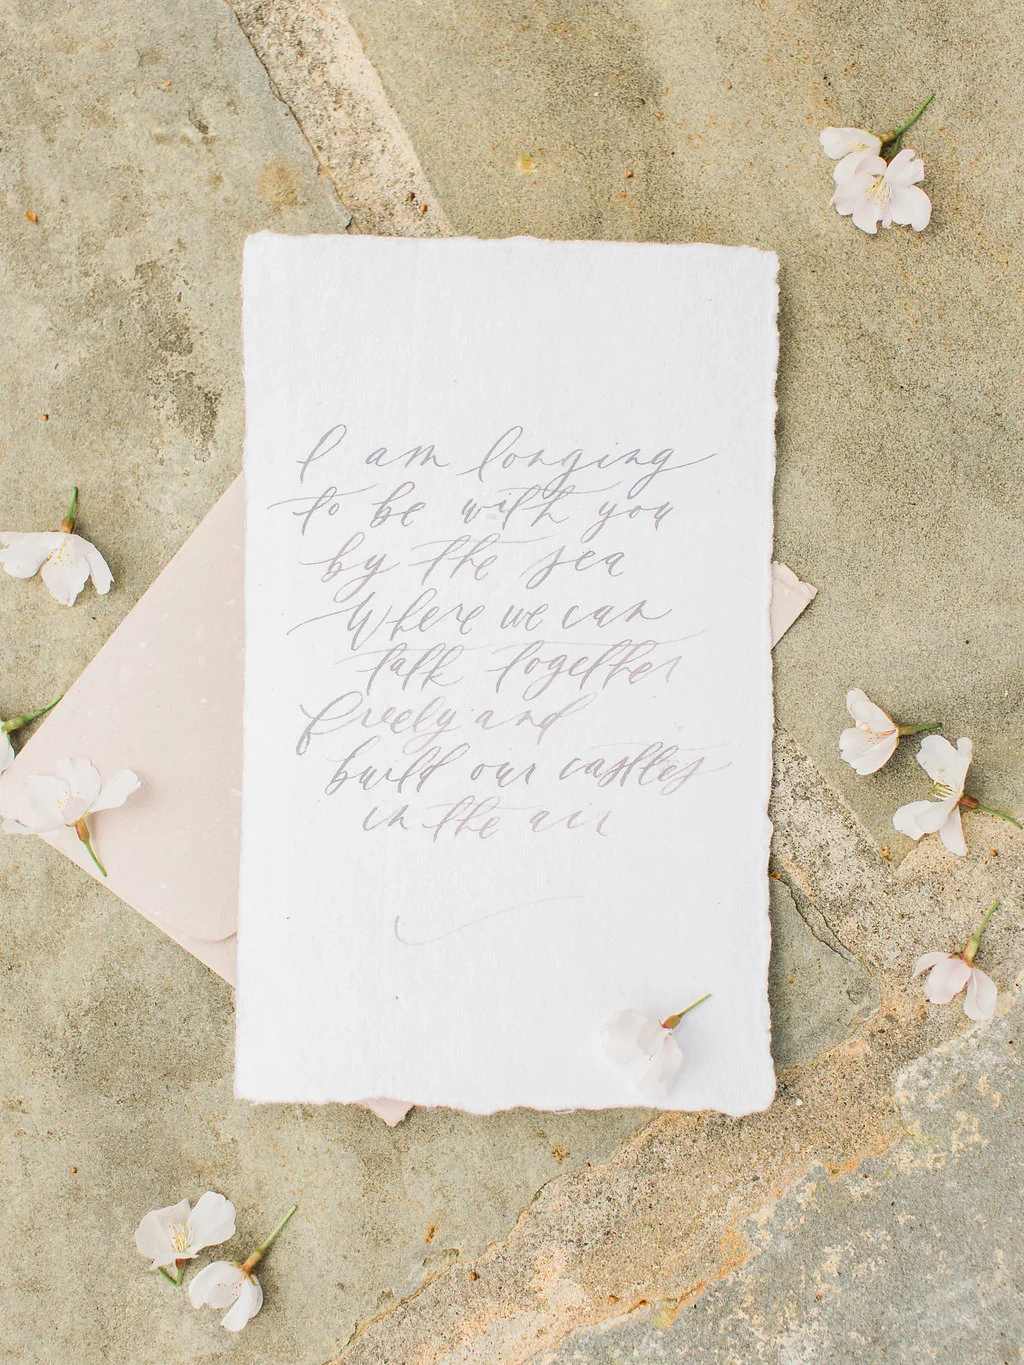 I am longing
to be with you
by the sea
Where we can
talk together
freely and
build our castles
in the air